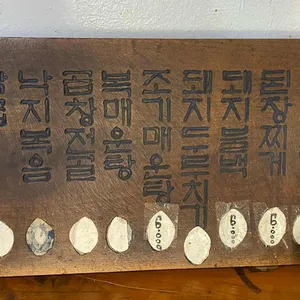 된장찌게
돼지불백
돼지두루치기
조기매운탕
복매운탕
곱창전골
낙지볶음
6.000
6.000
6.000